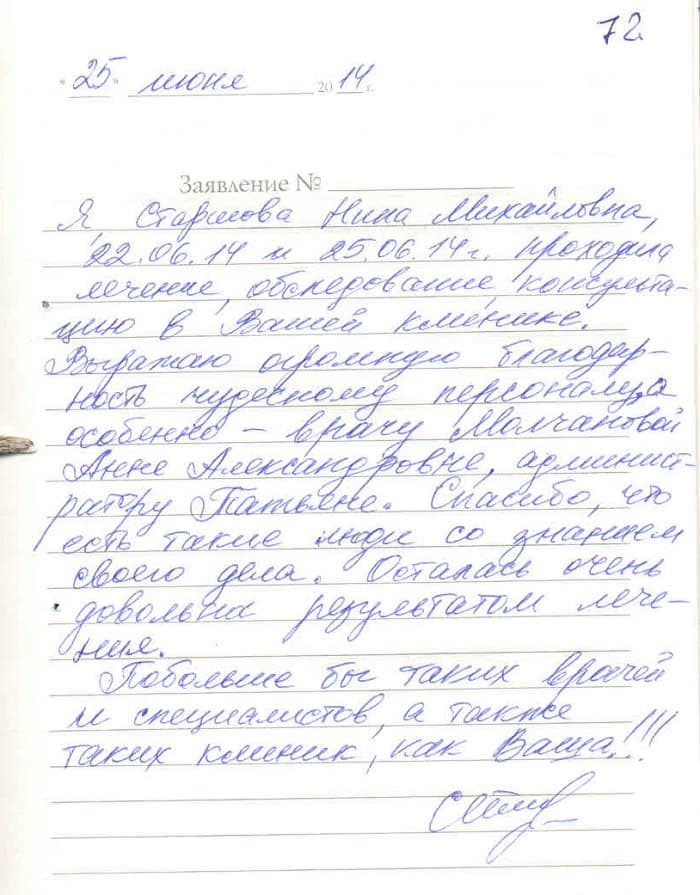 72.
"25" июня 2014 г.
Заявление №
Я, Старшова Нина Михайловна,
22.06.14 и 25.06.14г. проходила
лечение, обследование, консульта-
цию в Вашей клинике.
Выражаю огромную благодар-
ность чудесному персоналу, а
особенно – врачу Молчановой
Анне Александровне, админист-
ратору Татьяне. Спасибо, что
есть такие люди со знанием
своего дела. Осталась очень
довольна результатом лече-
ния.
Побольше бы таких врачей
и специалистов, а также
таких клиник, как Ваша!!!